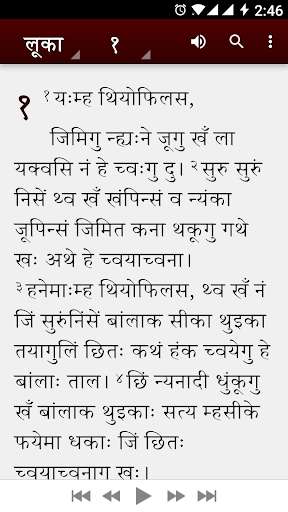 2:46
लूका १
१ १यःम्ह थियोफिलस,
जिमिगु न्ह्यःने जूगु खँ ला
यक्वसि नं हे च्वःगु दु। २सुरु सुरुं
निसें थ्व खँ खंपिन्सं व न्यंका
जूपिन्सं जिमित कना थकूगु गथे
खः अथे हे च्वयाच्वना।
३हनेमाःम्ह थियोफिलस, थ्व खँ नं
जिं सुरुंनिंसें बांलाक सीका थुइका
तयागुलिं छितः कथं हंक च्वयेगु हे
बांलाः ताल। ४छिं न्यनादी धुंकूगु
खँ बांलाक थुइकाः सत्य म्हसीके
फयेमा धकाः जिं छितः
च्वयाच्वनागु खः।